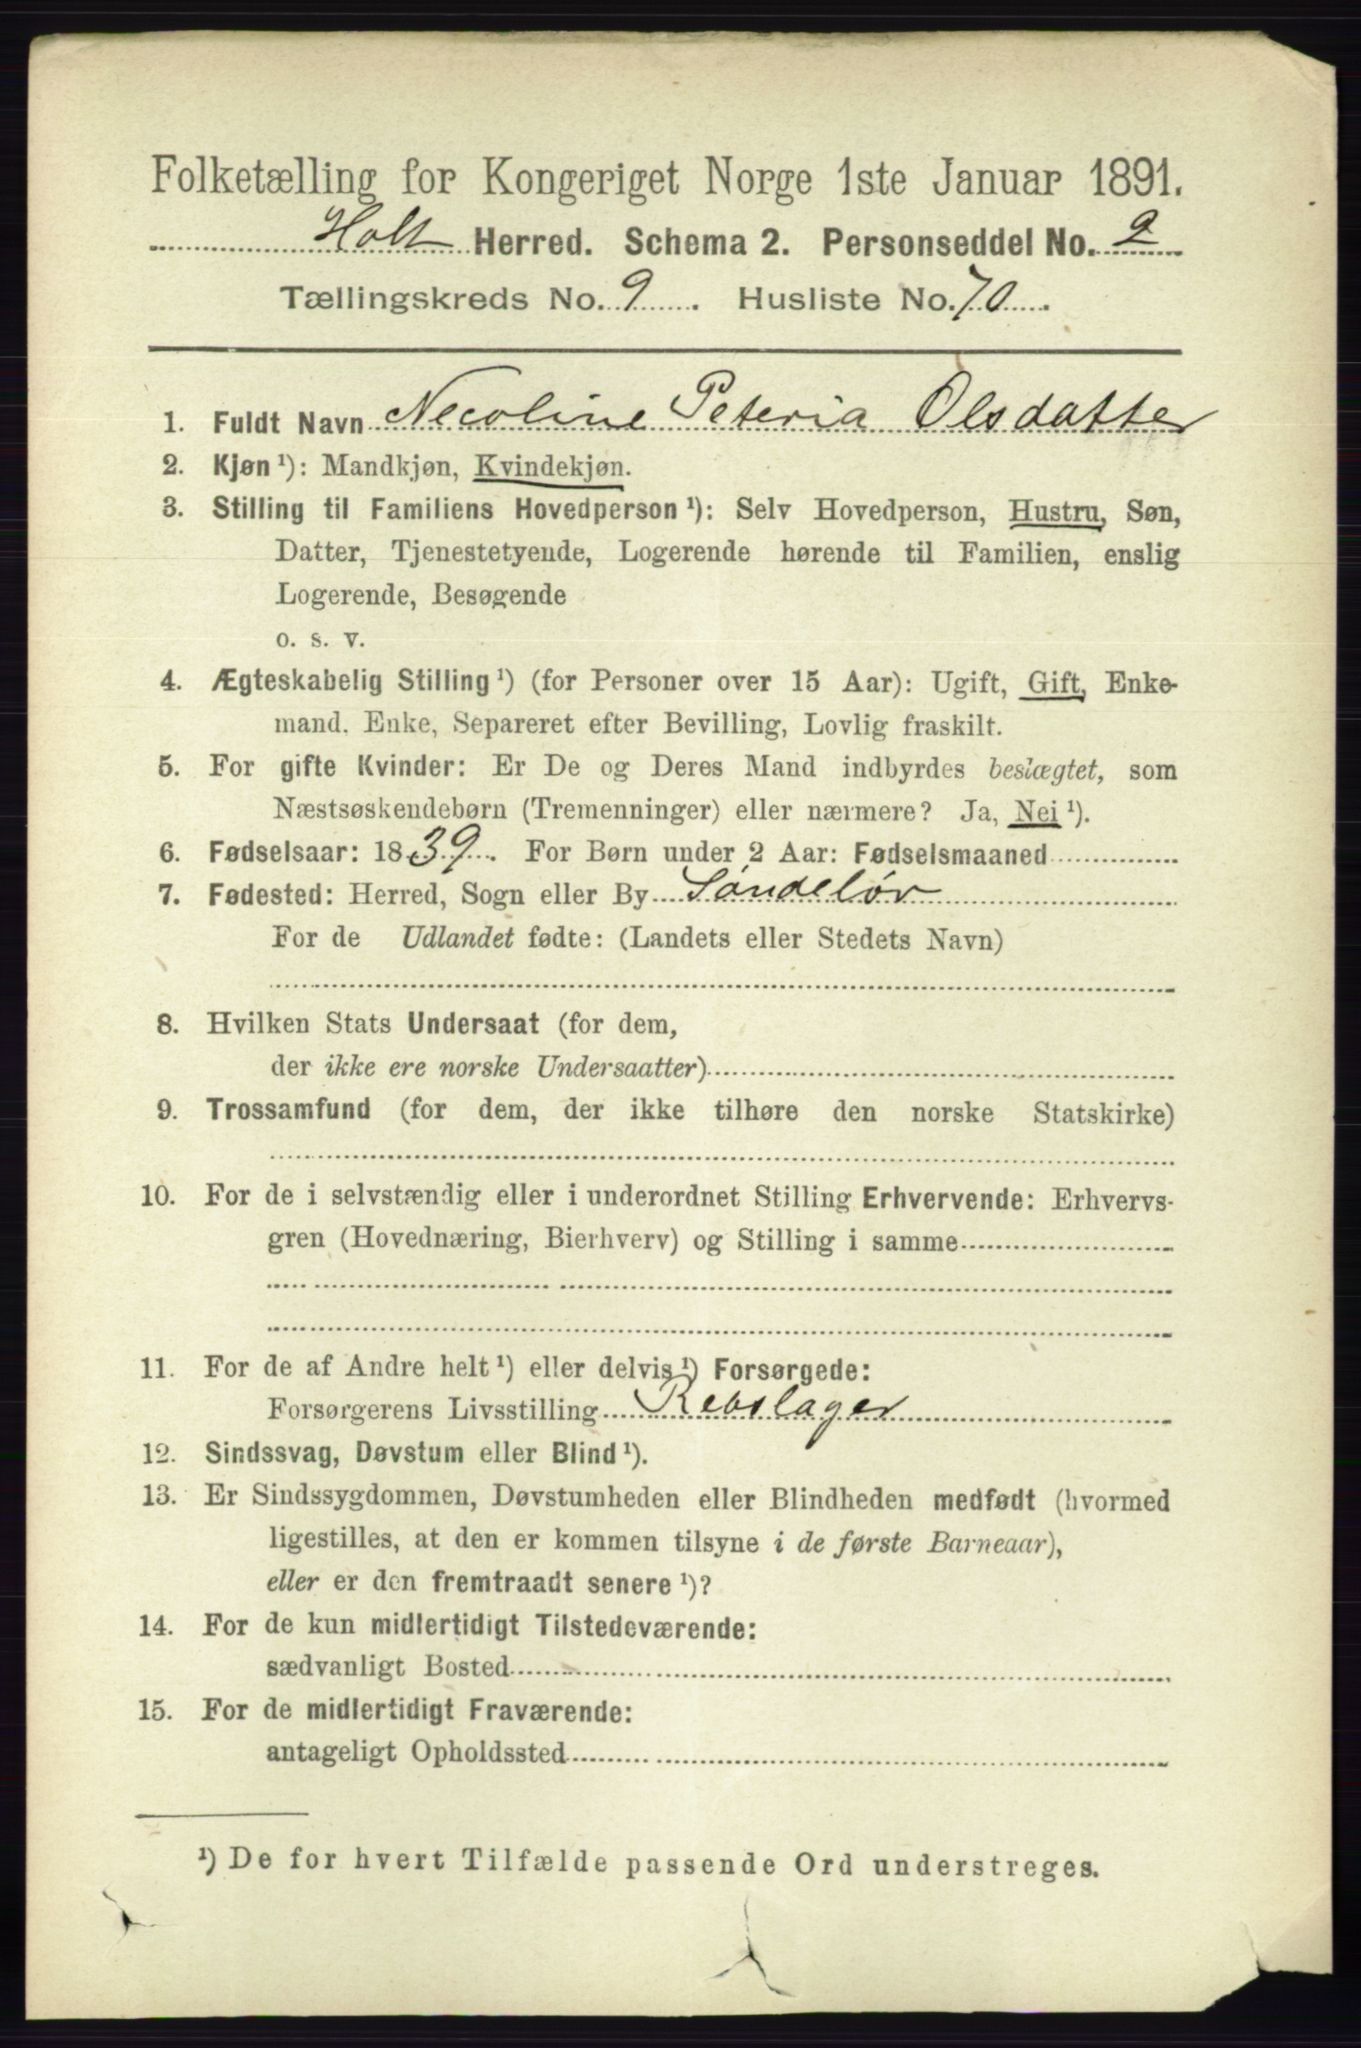 Folketælling for Kongeriget Norge 1ste Januar 1891.
Holt Herred. Schema 2. Personseddel No. 2
Tællingskreds No. 9. Husliste No. 70.
1. Fuldt Navn Necoline Peteria Olsdatter
2. Kjøn ¹): Mandkjøn, Kvindekjøn.
3. Stilling til Familiens Hovedperson ¹): Selv Hovedperson, Hustru, Søn,
Datter, Tjenestetyende, Logerende hørende til Familien, enslig
Logerende, Besøgende
o. s. v.
4. Ægteskabelig Stilling ¹) (for Personer over 15 Aar): Ugift, Gift, Enke-
mand, Enke, Separeret efter Bevilling, Lovlig fraskilt.
5. For gifte Kvinder: Er De og Deres Mand indbyrdes beslægtet, som
Næstsøskendebørn (Tremenninger) eller nærmere? Ja, Nei ¹).
6. Fødselsaar: 1839. For Børn under 2 Aar: Fødselsmaaned
7. Fødested: Herred, Sogn eller By Søndeløv
For de Udlandet fødte: (Landets eller Stedets Navn)
8. Hvilken Stats Undersaat (for dem,
der ikke ere norske Undersaatter)
9. Trossamfund (for dem, der ikke tilhøre den norske Statskirke)
10. For de i selvstændig eller i underordnet Stilling Erhvervende: Erhvervs-
gren (Hovednæring, Bierhverv) og Stilling i samme
11. For de af Andre helt ¹) eller delvis ¹) Forsørgede:
Forsørgerens Livsstilling Rebslager
12. Sindssvag, Døvstum eller Blind ¹).
13. Er Sindssygdommen, Døvstumheden eller Blindheden medfødt (hvormed
ligestilles, at den er kommen tilsyne i de første Barneaar),
eller er den fremtraadt senere ¹)?
14. For de kun midlertidigt Tilstedeværende:
sædvanligt Bosted
15. For de midlertidigt Fraværende:
antageligt Opholdssted
¹) De for hvert Tilfælde passende Ord understreges.